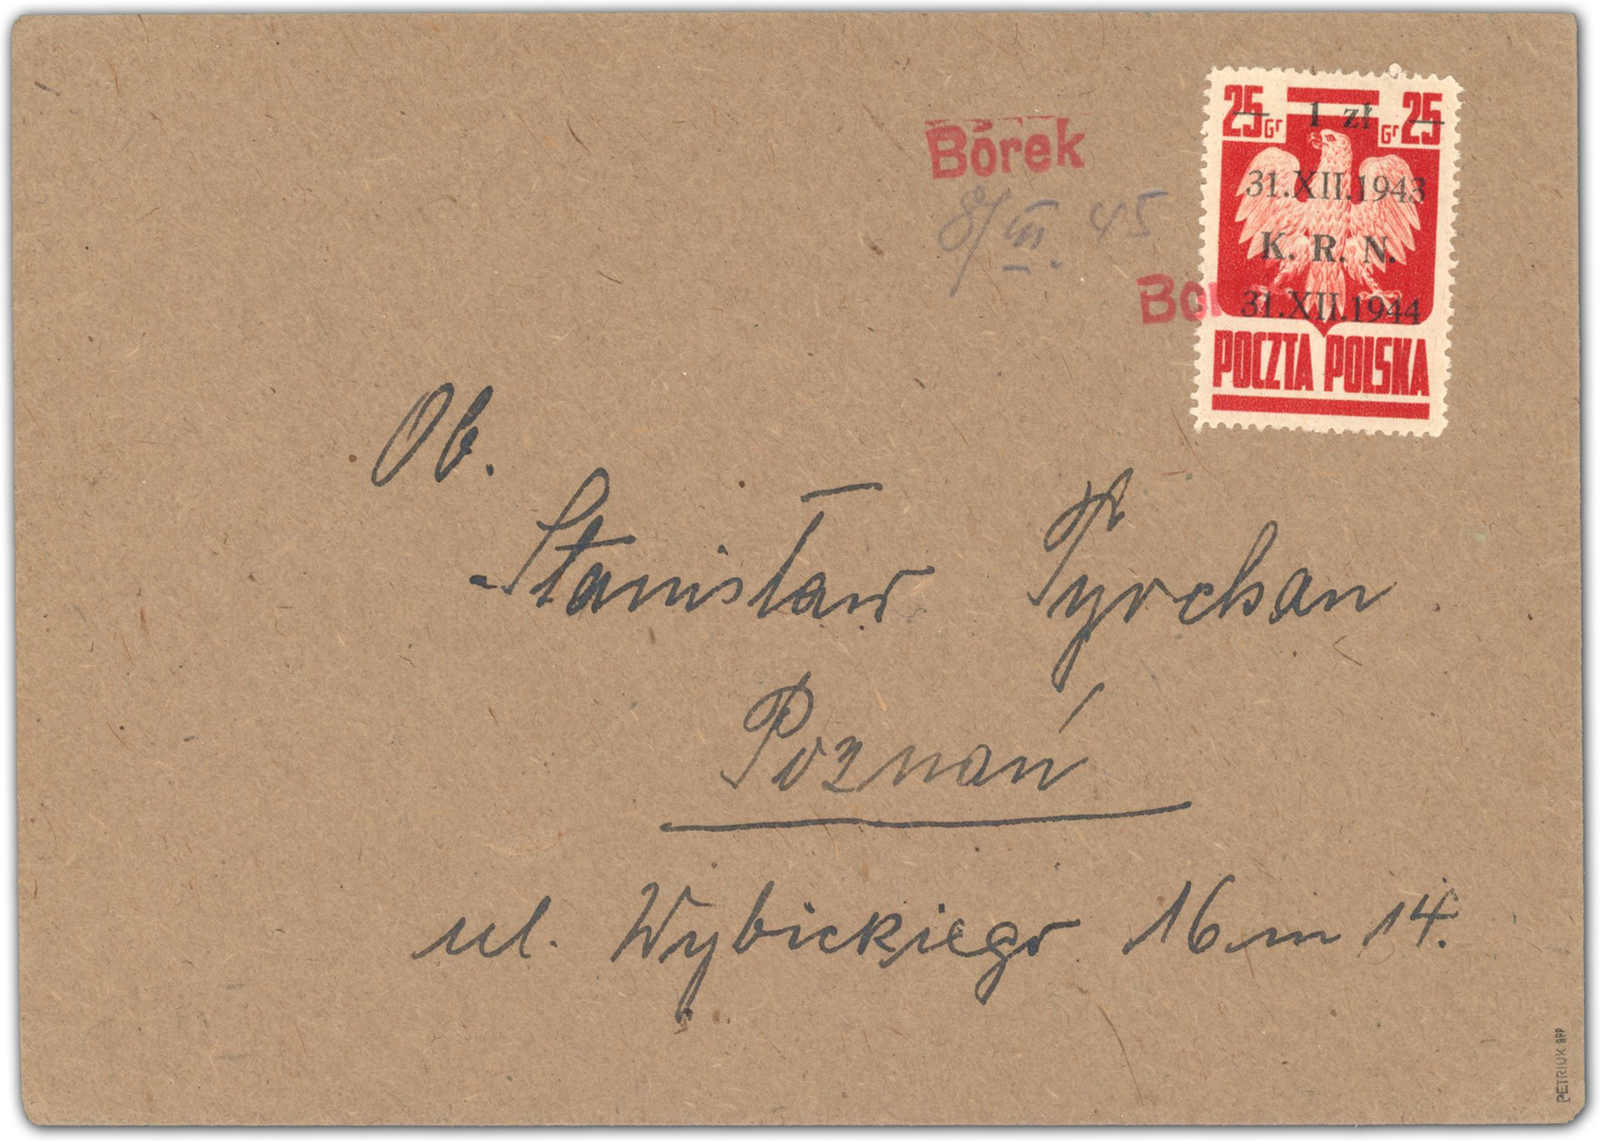 Bórek
8/VIII. 45
25 Gr 1 zł Gr 25
31.XII.1943
K. R. N.
Bor 31.XII.1944
POCZTA POLSKA
Ob.
Stanisław Pyrchan
Poznań
ul. Wybickiego 16 m 14.
PETRIUK BPP